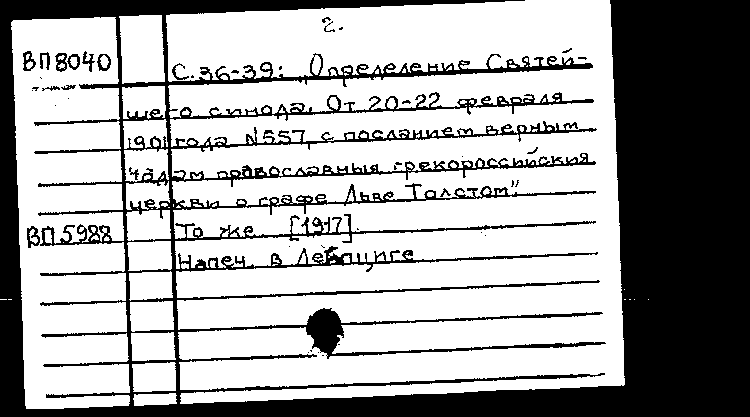 2.
ВП 8040 С. 36-39: „Определение Святей-
шего синода. От 20-22 февраля
1901 года №557, с посланием верным
чадам православныя грекороссийския
церкви о графе Льве Толстом".
ВП 5988 То же [1917]
Напеч. в Лейпциге